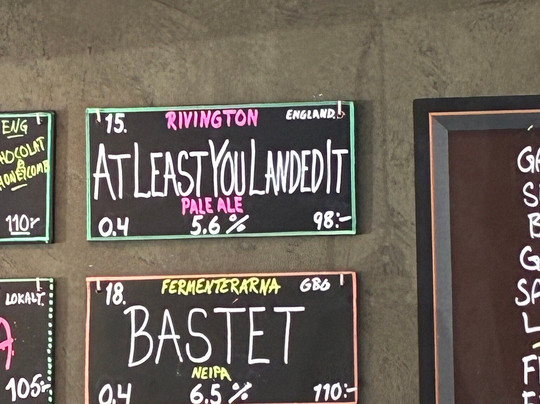 ENG
HOCOLAT
&
HONEYCOMB
110:-
15. RIVINGTON ENGLAND.
AT LEAST YOU LANDED IT
PALE ALE
0.4 5.6 % 98:-
LOKALT.
A
105:-
18. FERMENTERARNA GBG
BASTET
NEIPA
0.4 6.5 % 110:-
G
S
B
G
SA
L
F